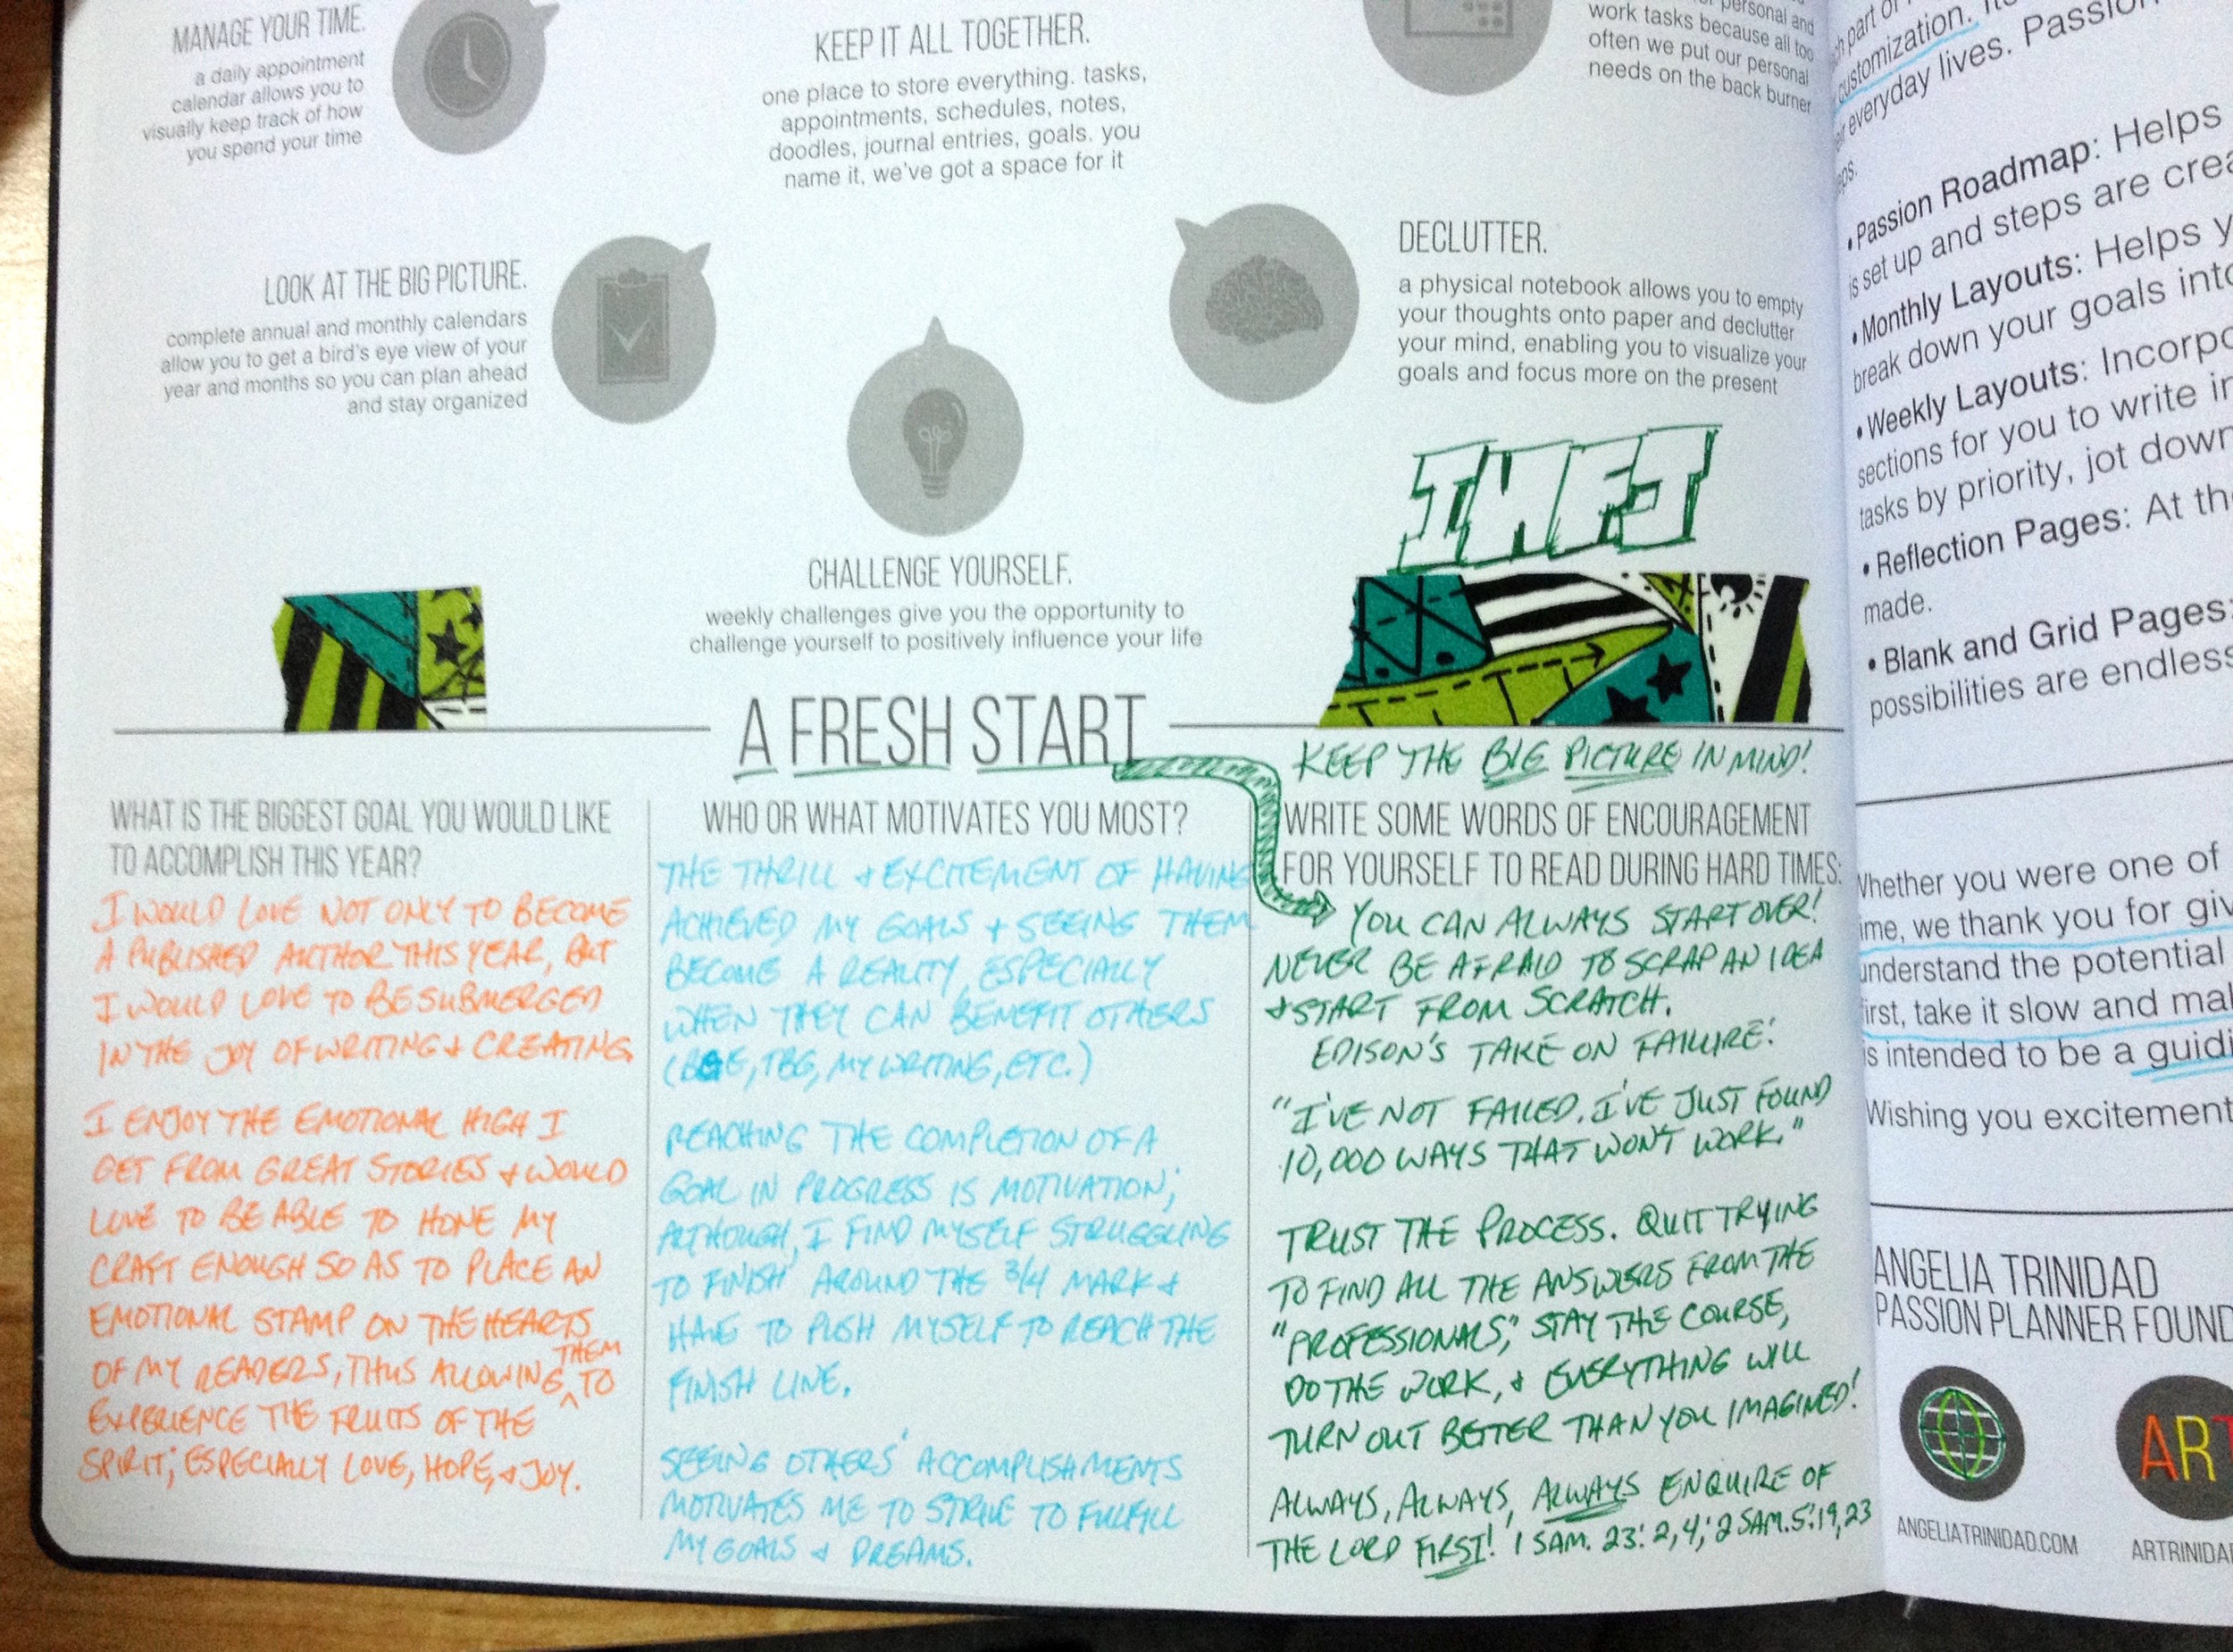 MANAGE YOUR TIME.
a daily appointment
calendar allows you to
visually keep track of how
you spend your time
KEEP IT ALL TOGETHER.
one place to store everything. tasks,
appointments, schedules, notes,
doodles, journal entries, goals. you
name it, we've got a space for it
personal and
work tasks because all too
often we put our personal
needs on the back burner
LOOK AT THE BIG PICTURE.
complete annual and monthly calendars
allow you to get a bird's eye view of your
year and months so you can plan ahead
and stay organized
DECLUTTER.
a physical notebook allows you to empty
your thoughts onto paper and declutter
your mind, enabling you to visualize your
goals and focus more on the present
CHALLENGE YOURSELF.
weekly challenges give you the opportunity to
challenge yourself to positively influence your life
A FRESH START
WHAT IS THE BIGGEST GOAL YOU WOULD LIKE
TO ACCOMPLISH THIS YEAR?
I WOULD LOVE NOT ONLY TO BECOME
A PUBLISHED AUTHOR THIS YEAR, BUT
I WOULD LOVE TO BE SUBMERGED
IN THE JOY OF WRITING & CREATING.
I ENJOY THE EMOTIONAL HIGH I
GET FROM GREAT STORIES & WOULD
LOVE TO BE ABLE TO HONE MY
CRAFT ENOUGH SO AS TO PLACE AN
EMOTIONAL STAMP ON THE HEARTS
OF MY READERS, THUS ALLOWING THEM TO
EXPERIENCE THE FRUITS OF THE
SPIRIT; ESPECIALLY LOVE, HOPE, & JOY.
WHO OR WHAT MOTIVATES YOU MOST?
THE THRILL & EXCITEMENT OF HAVING
ACHIEVED MY GOALS & SEEING THEM
BECOME A REALITY, ESPECIALLY
WHEN THEY CAN BENEFIT OTHERS
TBG, MY WRITING, ETC.)
REACHING THE COMPLETION OF A
GOAL IN PROGRESS IS MOTIVATION;
ALTHOUGH, I FIND MYSELF STRUGGLING
TO FINISH AROUND THE 3/4 MARK &
HAVE TO PUSH MYSELF TO REACH THE
FINISH LINE.
SEEING OTHERS' ACCOMPLISHMENTS
MOTIVATES ME TO STRIVE TO FULFILL
MY GOALS & DREAMS.
KEEP THE BIG PICTURE IN MIND!
WRITE SOME WORDS OF ENCOURAGEMENT
FOR YOURSELF TO READ DURING HARD TIMES:
YOU CAN ALWAYS START OVER!
NEVER BE AFRAID TO SCRAP AN IDEA
& START FROM SCRATCH.
EDISON'S TAKE ON FAILURE:
"I'VE NOT FAILED. I'VE JUST FOUND
10,000 WAYS THAT WON'T WORK."
TRUST THE PROCESS. QUIT TRYING
TO FIND ALL THE ANSWERS FROM THE
"PROFESSIONALS," STAY THE COURSE,
DO THE WORK, & EVERYTHING WILL
TURN OUT BETTER THAN YOU IMAGINED!
ALWAYS, ALWAYS, ALWAYS ENQUIRE OF
THE LORD FIRST! 1 SAM. 23:2,4; 2 SAM. 5:19,23
part of
customization.
everyday lives.
• Passion Roadmap: Helps
is set up and steps are
• Monthly Layouts: Helps
break down your goals into
• Weekly Layouts:
sections for you to write in
tasks by priority, jot down
• Reflection Pages: At
made.
• Blank and Grid Pages:
possibilities are endless
Whether you were one of
we thank you for
understand the potential
first, take it slow and
is intended to be a
Wishing you excitement
ANGELIA TRINIDAD
PASSION PLANNER
ANGELIATRINIDAD.COM